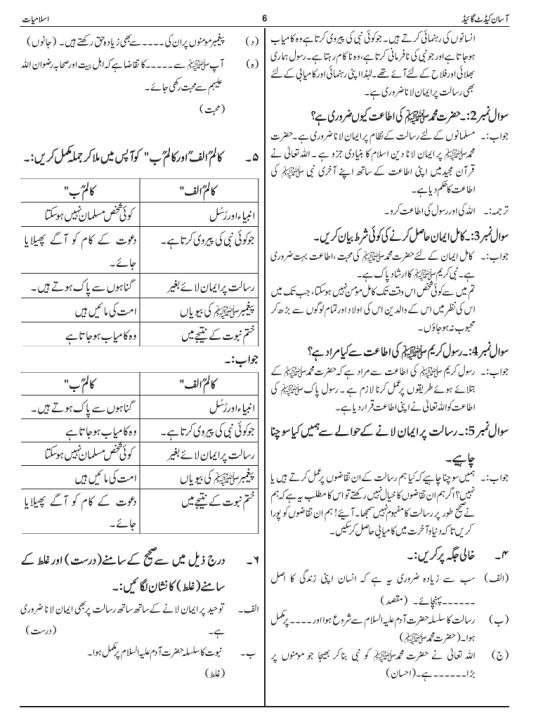 آسان کیڈٹ گائیڈ
6
اسلامیات
انسانوں کی رہنمائی کرتے ہیں۔ جو کوئی نبی کی پیروی کرتا ہے وہ کامیاب
ہو جاتا ہے اور جو نبی کی نافرمانی کرتا ہے، وہ ناکام رہتا ہے۔ رسول ہماری
بھلائی اور فلاح کے لئے آئے تھے۔ لہٰذا اپنی رہنمائی اور کامیابی کے لئے
بھی رسالت پر ایمان لانا ضروری ہے۔
سوال نمبر 2:۔ حضرت محمد ﷺ کی اطاعت کیوں ضروری ہے؟
جواب:۔ مسلمانوں کے لئے رسالت کے نظام پر ایمان لانا ضروری ہے۔ حضرت
محمد ﷺ پر ایمان لانا دین اسلام کا بنیادی جزو ہے۔ اللہ تعالیٰ نے
قرآن مجید میں اپنی اطاعت کے ساتھ اپنے آخری نبی ﷺ کی
اطاعت کا حکم دیا ہے۔
ترجمہ:۔ اللہ کی اور رسول کی اطاعت کرو۔
سوال نمبر 3:۔ کامل ایمان حاصل کرنے کی کوئی شرط بیان کریں۔
جواب:۔ کامل ایمان کے لئے حضرت محمد ﷺ کی محبت، اطاعت بہت ضروری
ہے۔ نبی کریم ﷺ کا ارشاد پاک ہے۔
تم میں سے کوئی شخص اس وقت تک کامل مومن نہیں ہو سکتا، جب تک میں
اس کی نظر میں اس کے والدین اس کی اولاد اور تمام لوگوں سے بڑھ کر
محبوب نہ ہو جاؤں۔
سوال نمبر 4:۔ رسول کریم ﷺ کی اطاعت سے کیا مراد ہے؟
جواب:۔ رسول کریم ﷺ کی اطاعت سے مراد ہے کہ حضرت محمد ﷺ کے
بتلائے ہوئے طریقوں پر عمل کرنا لازم ہے۔ رسول پاک ﷺ کی
اطاعت کو اللہ تعالیٰ نے اپنی اطاعت قرار دیا ہے۔
سوال نمبر 5:۔ رسالت پر ایمان لانے کے حوالے سے ہمیں کیا سوچنا
چاہیے۔
جواب:۔ ہمیں سوچنا چاہیے کہ کیا ہم رسالت کے ان تقاضوں پر عمل کرتے ہیں یا
نہیں؟ اگر ہم ان تقاضوں کا خیال نہیں رکھتے تو اس کا مطلب یہ ہے کہ ہم
نے صحیح طور پر رسالت کا مفہوم نہیں سمجھا۔ آیئے! ہم ان تقاضوں کو پورا
کریں تاکہ دنیا و آخرت میں کامیابی حاصل کر سکیں۔
۴۔ خالی جگہ پر کریں:۔
(الف) سب سے زیادہ ضروری یہ ہے کہ انسان اپنی زندگی کا اصل
۔۔۔۔۔۔ پہنچائے۔ (مقصد)
(ب) رسالت کا سلسلہ حضرت آدم علیہ السلام سے شروع ہوا اور ۔۔۔۔ پر مکمل
ہوا۔ (حضرت محمد ﷺ)
(ج) اللہ تعالیٰ نے حضرت محمد ﷺ کو نبی بنا کر بھیجا جو مومنوں پر
بڑا۔۔۔۔۔۔ ہے۔ (احسان)
(د) پیغمبر مومنوں پر ان کی ۔۔۔۔ سے بھی زیادہ حق رکھتے ہیں۔ (جانوں)
(ہ) آپ ﷺ سے ۔۔۔۔۔ کا تقاضا ہے کہ اہل بیت اور صحابہ رضوان اللہ
علیہم سے محبت رکھی جائے۔
(محبت)
۵۔ کالم "الف" اور کالم "ب" کو آپس میں ملا کر جملہ مکمل کریں:۔
کالم "الف" کالم "ب"
انبیاء اور رُسُل کوئی شخص مسلمان نہیں ہو سکتا
جو کوئی نبی کی پیروی کرتا ہے۔ دعوت کے کام کو آگے پھیلایا
جائے۔
رسالت پر ایمان لائے بغیر گناہوں سے پاک ہوتے ہیں۔
پیغمبر ﷺ کی بیویاں امت کی مائیں ہیں
ختم نبوت کے نتیجے میں وہ کامیاب ہو جاتا ہے
جواب:۔
کالم "الف" کالم "ب"
انبیاء اور رُسُل گناہوں سے پاک ہوتے ہیں۔
جو کوئی نبی کی پیروی کرتا ہے۔ وہ کامیاب ہو جاتا ہے
رسالت پر ایمان لائے بغیر کوئی شخص مسلمان نہیں ہو سکتا
پیغمبر ﷺ کی بیویاں امت کی مائیں ہیں
ختم نبوت کے نتیجے میں دعوت کے کام کو آگے پھیلایا
جائے۔
۶۔ درج ذیل میں سے صحیح کے سامنے (درست) اور غلط کے
سامنے (غلط) کا نشان لگائیں:۔
الف۔ توحید پر ایمان لانے کے ساتھ ساتھ رسالت پر بھی ایمان لانا ضروری
ہے۔ (درست)
ب۔ نبوت کا سلسلہ حضرت آدم علیہ السلام پر مکمل ہوا۔
(غلط)